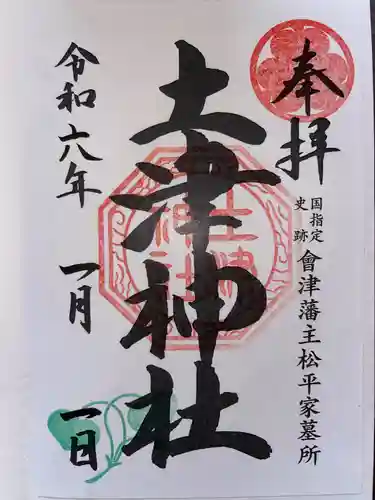 奉拝
国指定
史跡
會津藩主松平家墓所
土津神社
土津
神社
令和六年
一月
一日